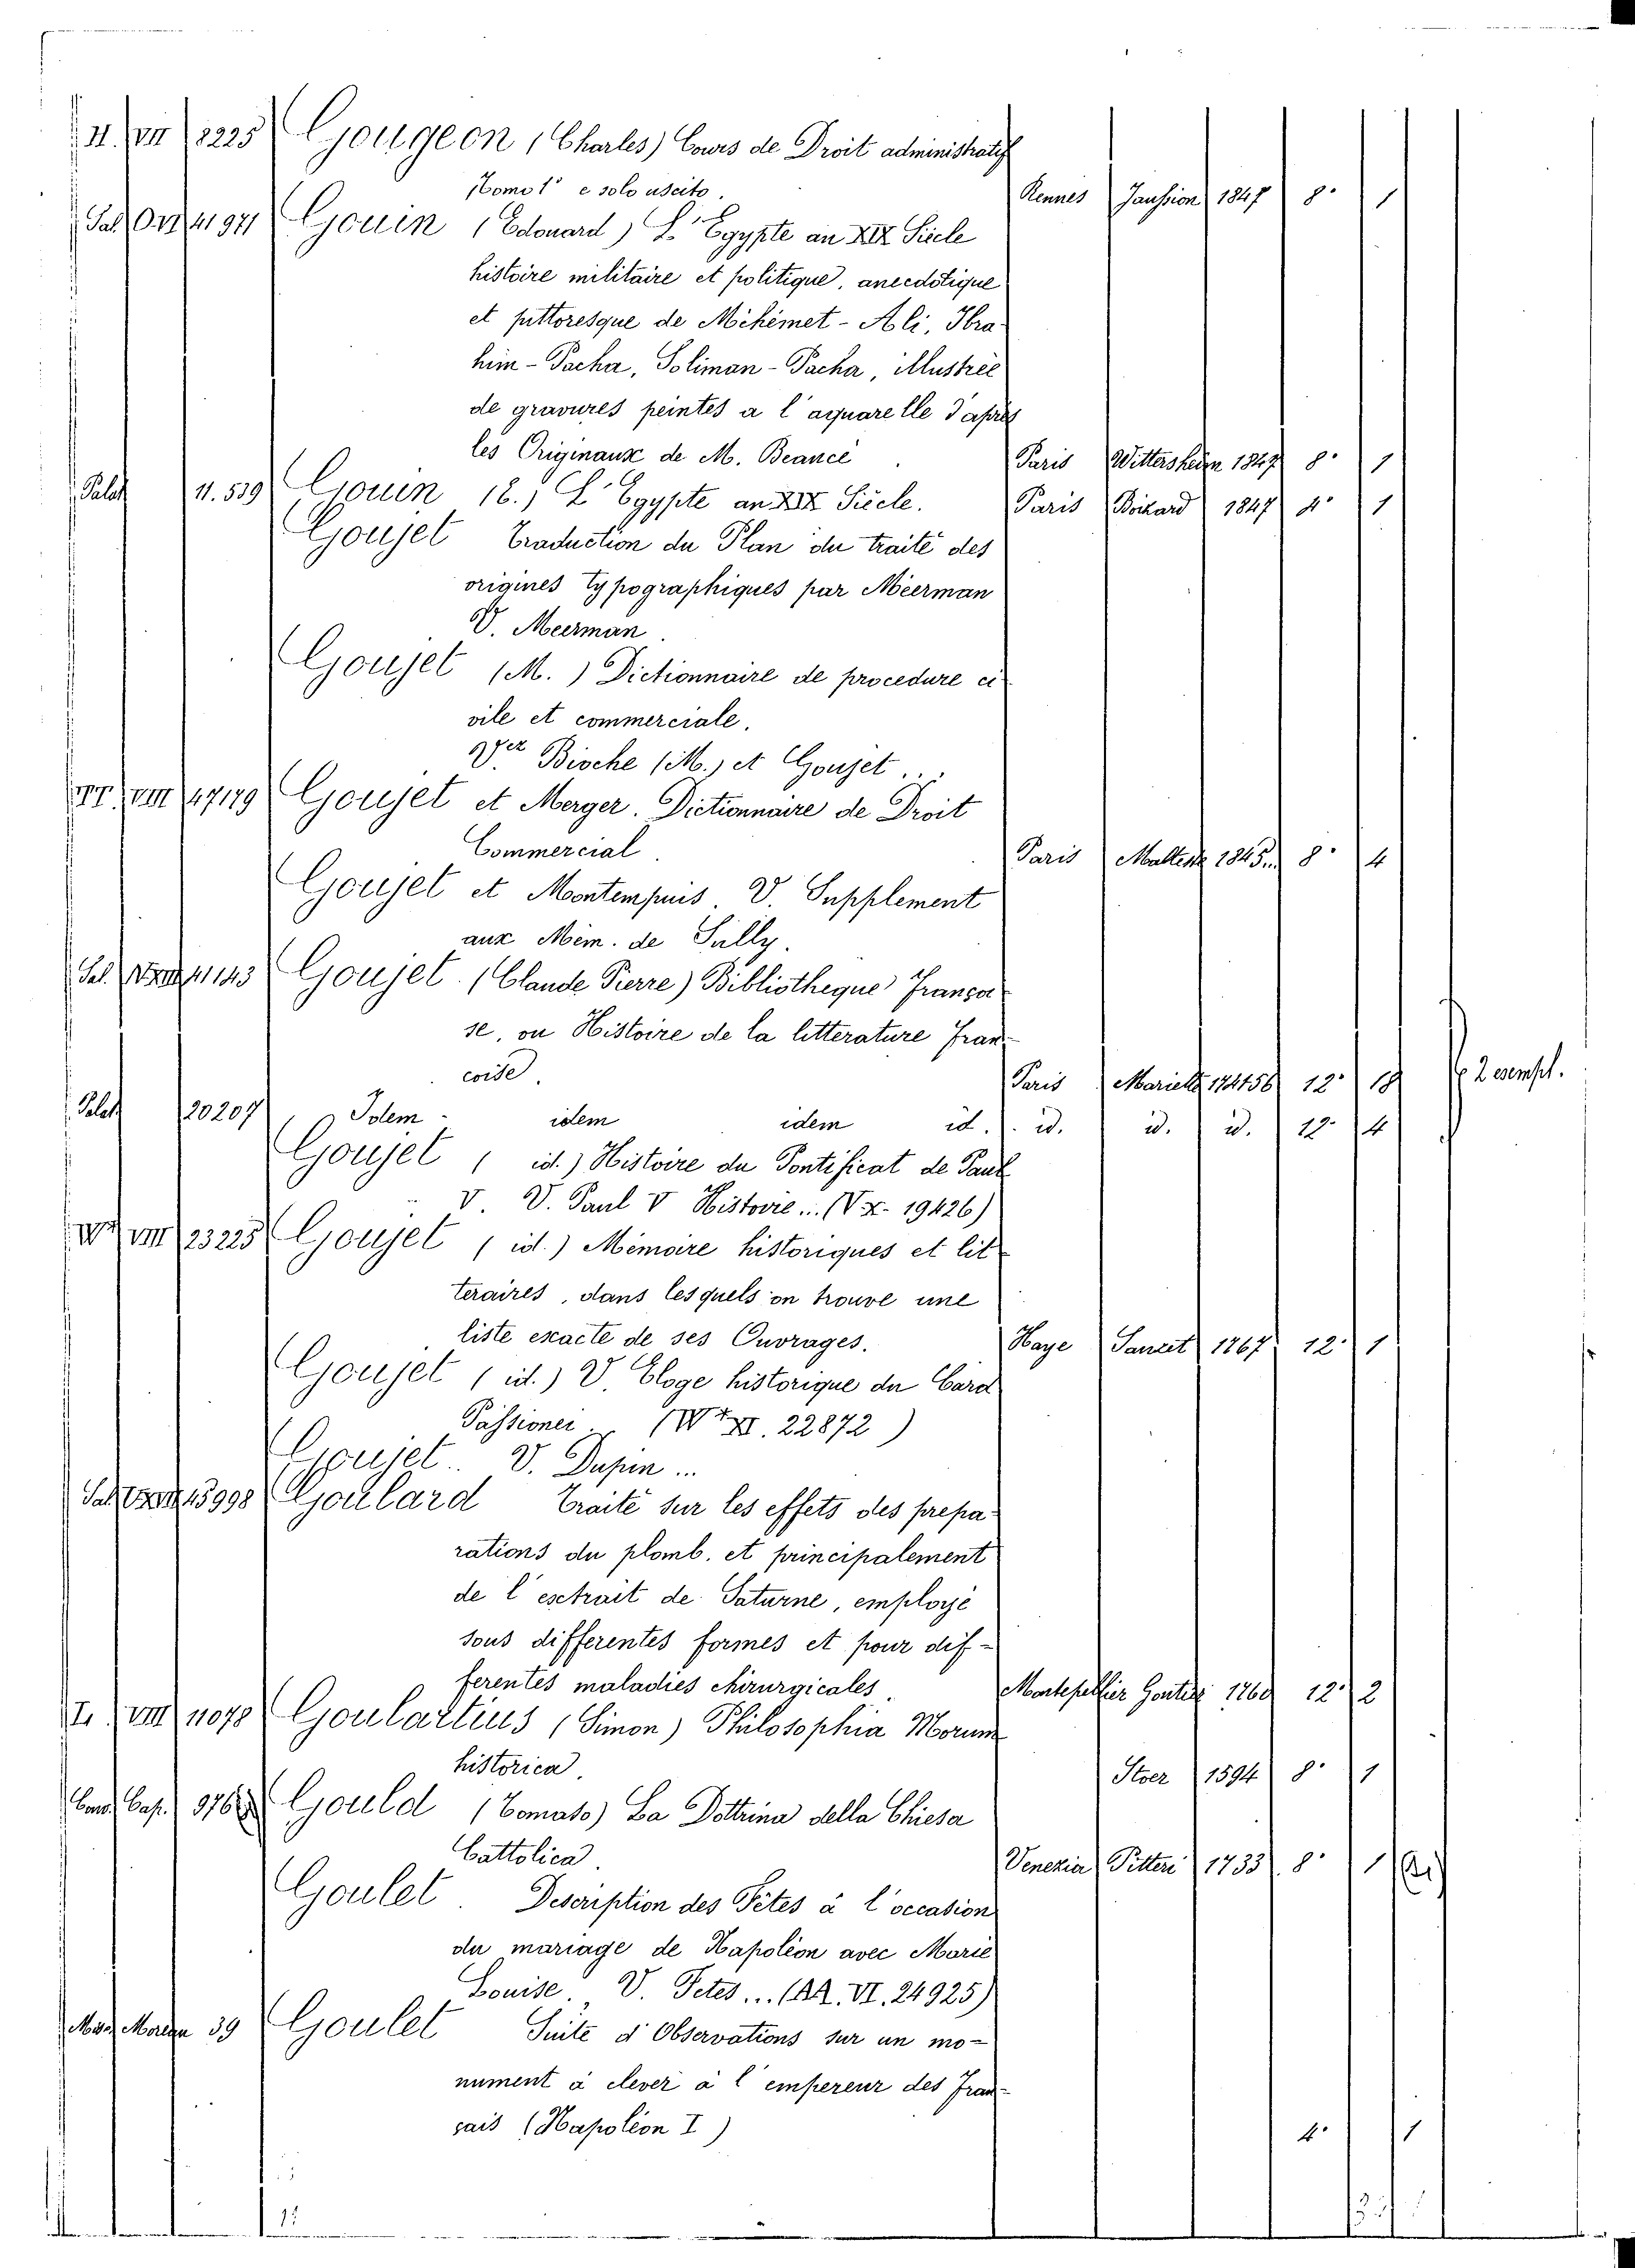 II. VII 2225 Gougeon (Charles) Cours de Droit administratif
Tomo 1° e solo uscito. Rennes Janssion 1847 8° 1
41971 Gouin (Edouard) L'Egypte au XIX Siècle
histoire militaire et politique, anecdotique
et pittoresque de Méhémet-Ali, Ibra
him-Pacha, Soliman-Pacha, illustrée
de gravures peintes a l'aquarelle d'après
les Originaux de M. Beancé Paris Wittersheim 1847 8° 1
Palat 11.539 Gouin (E.) L'Egypte au XIX Siècle. Paris Boihard 1847 4° 1
Goujet Traduction du Plan du traité des
origines typographiques par Méerman
V. Meerman.
Goujet (M.) Dictionnaire de procedure ci
vile et commerciale.
Bioche (M.) et Goujet...
VIII 47179 Goujet et Merger. Dictionnaire de Droit
Commercial. Paris 1845.. 8° 4
Goujet et Montempuis. V. Supplement
aux Mém. de Sully.
41143 Goujet. (Claude Pierre) Bibliotheque Françoi
se, ou Histoire de la litterature Fran
çoise. Paris Mariette 174156 12° 18 2 esempl.
Palat 20207 Idem idem idem id. id. id. id. 12° 4
Goujet (id.) Histoire du Pontificat de Paul
V. V. Paul V Histoire... (V X. 19426)
VIII 23225 Goujet (id.) Mémoire historiques et lit
teraires, dans lesquels on trouve une
liste exacte de ses Ouvrages. Haye Sanzet 1767 12° 1
Goujet (id.) V. Eloge historique du Card
Passionei. (W+ XI. 22872)
Goujet. V. Dupin...
15998 Goulard Traité sur les effets des prepa
rations du plomb, et principalement
de l'extrait de Saturne, employé
sous differentes formes et pour dif-
ferentes maladies chirurgicales. Montepellier 1760 12° 2
T. VIII 11078 Goulartius (Simon) Philosophia Morum
historica. Stoer 1594 8° 1
Cap. Gould (Tomaso) La Dottrina della Chiesa
Cattolica. Venezia Pitteri 1733 8° 1
Goulet. Description des Fêtes à l'occasion
du mariage de Napoléon avec Marie
Louise. V. Fetes... (AA. VI. 24925)
39 Goulet Suite d'Observations sur un mo-
nument à elever à l'empereur des Fran-
çais (Napoléon I) 4° 1